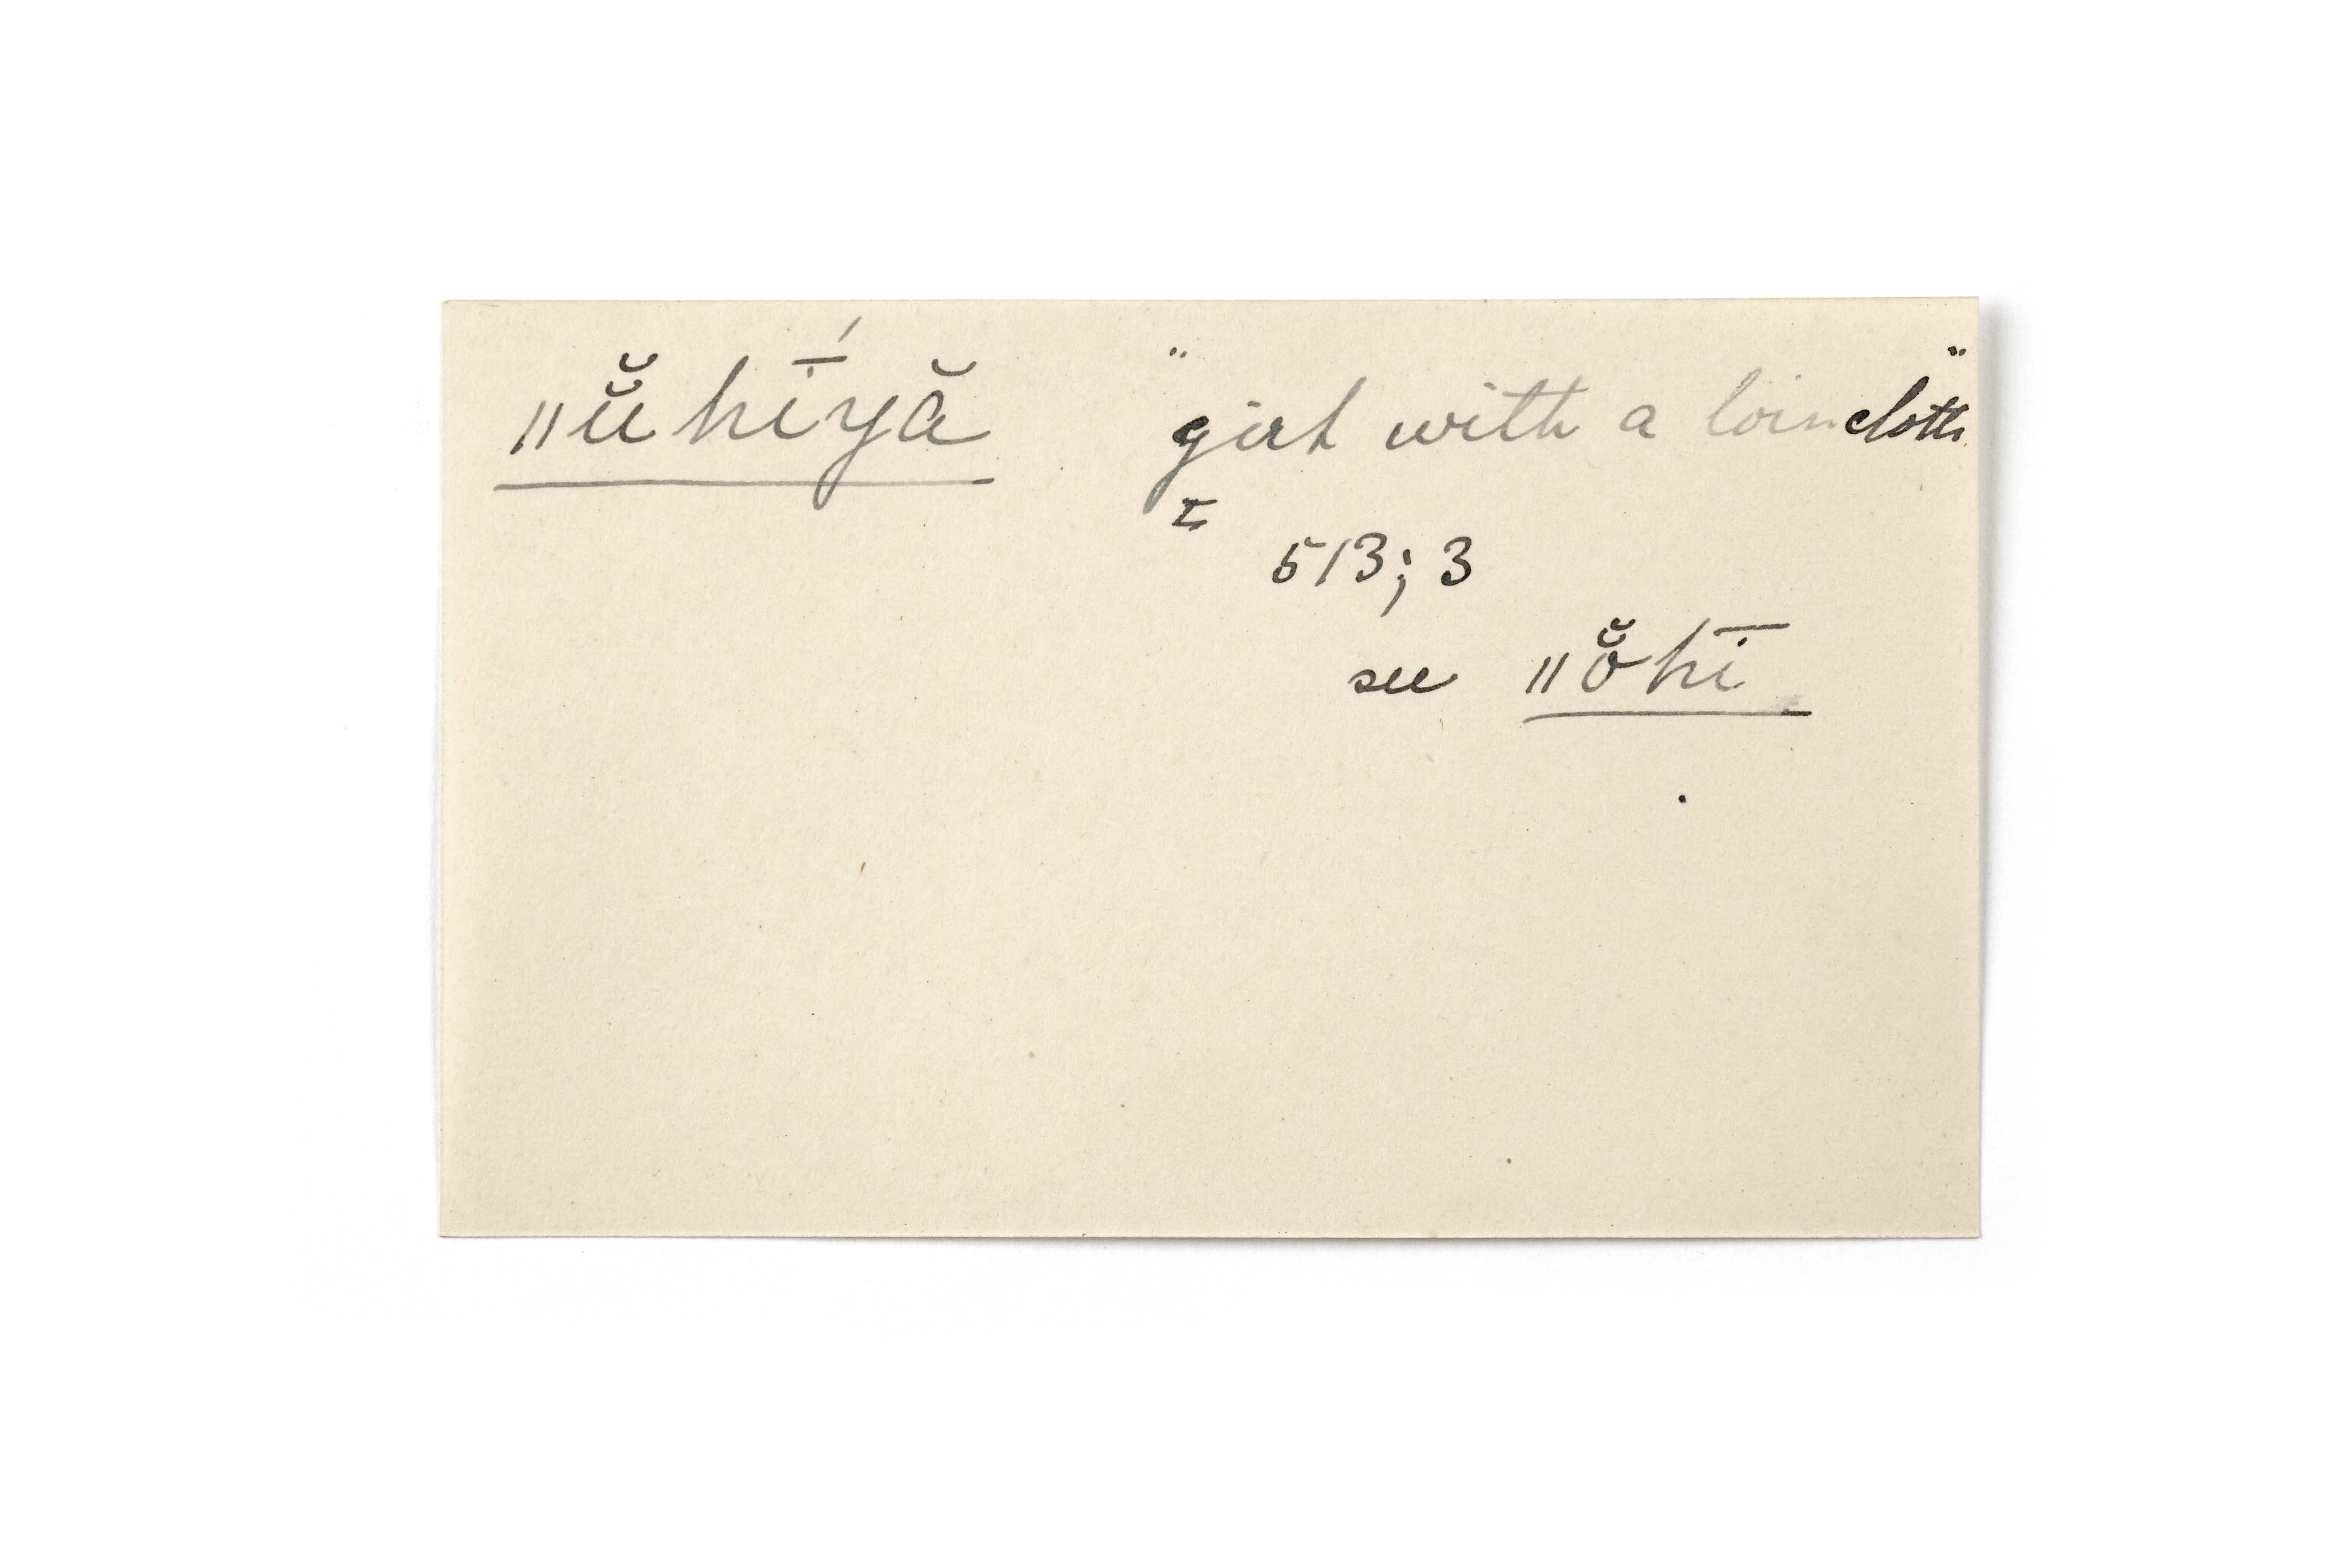 ǁŭ̆ hī́yă "girt with a loincloth"
513; 3
see ǁŏ̆hī